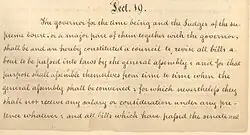 Sect. 19.
The governor for the time being and the Judges of the su
preme court, or a major part of them together with the governor,
shall be and are hereby constituted a council to revise all bills a
bout to be passed into laws by the general assembly; and for that
purpose shall assemble themselves from time to time when the
general assembly shall be convened; for which nevertheless they
shall not receive any salary or consideration under any pre
tence whatever; and all bills which have passed the senate and